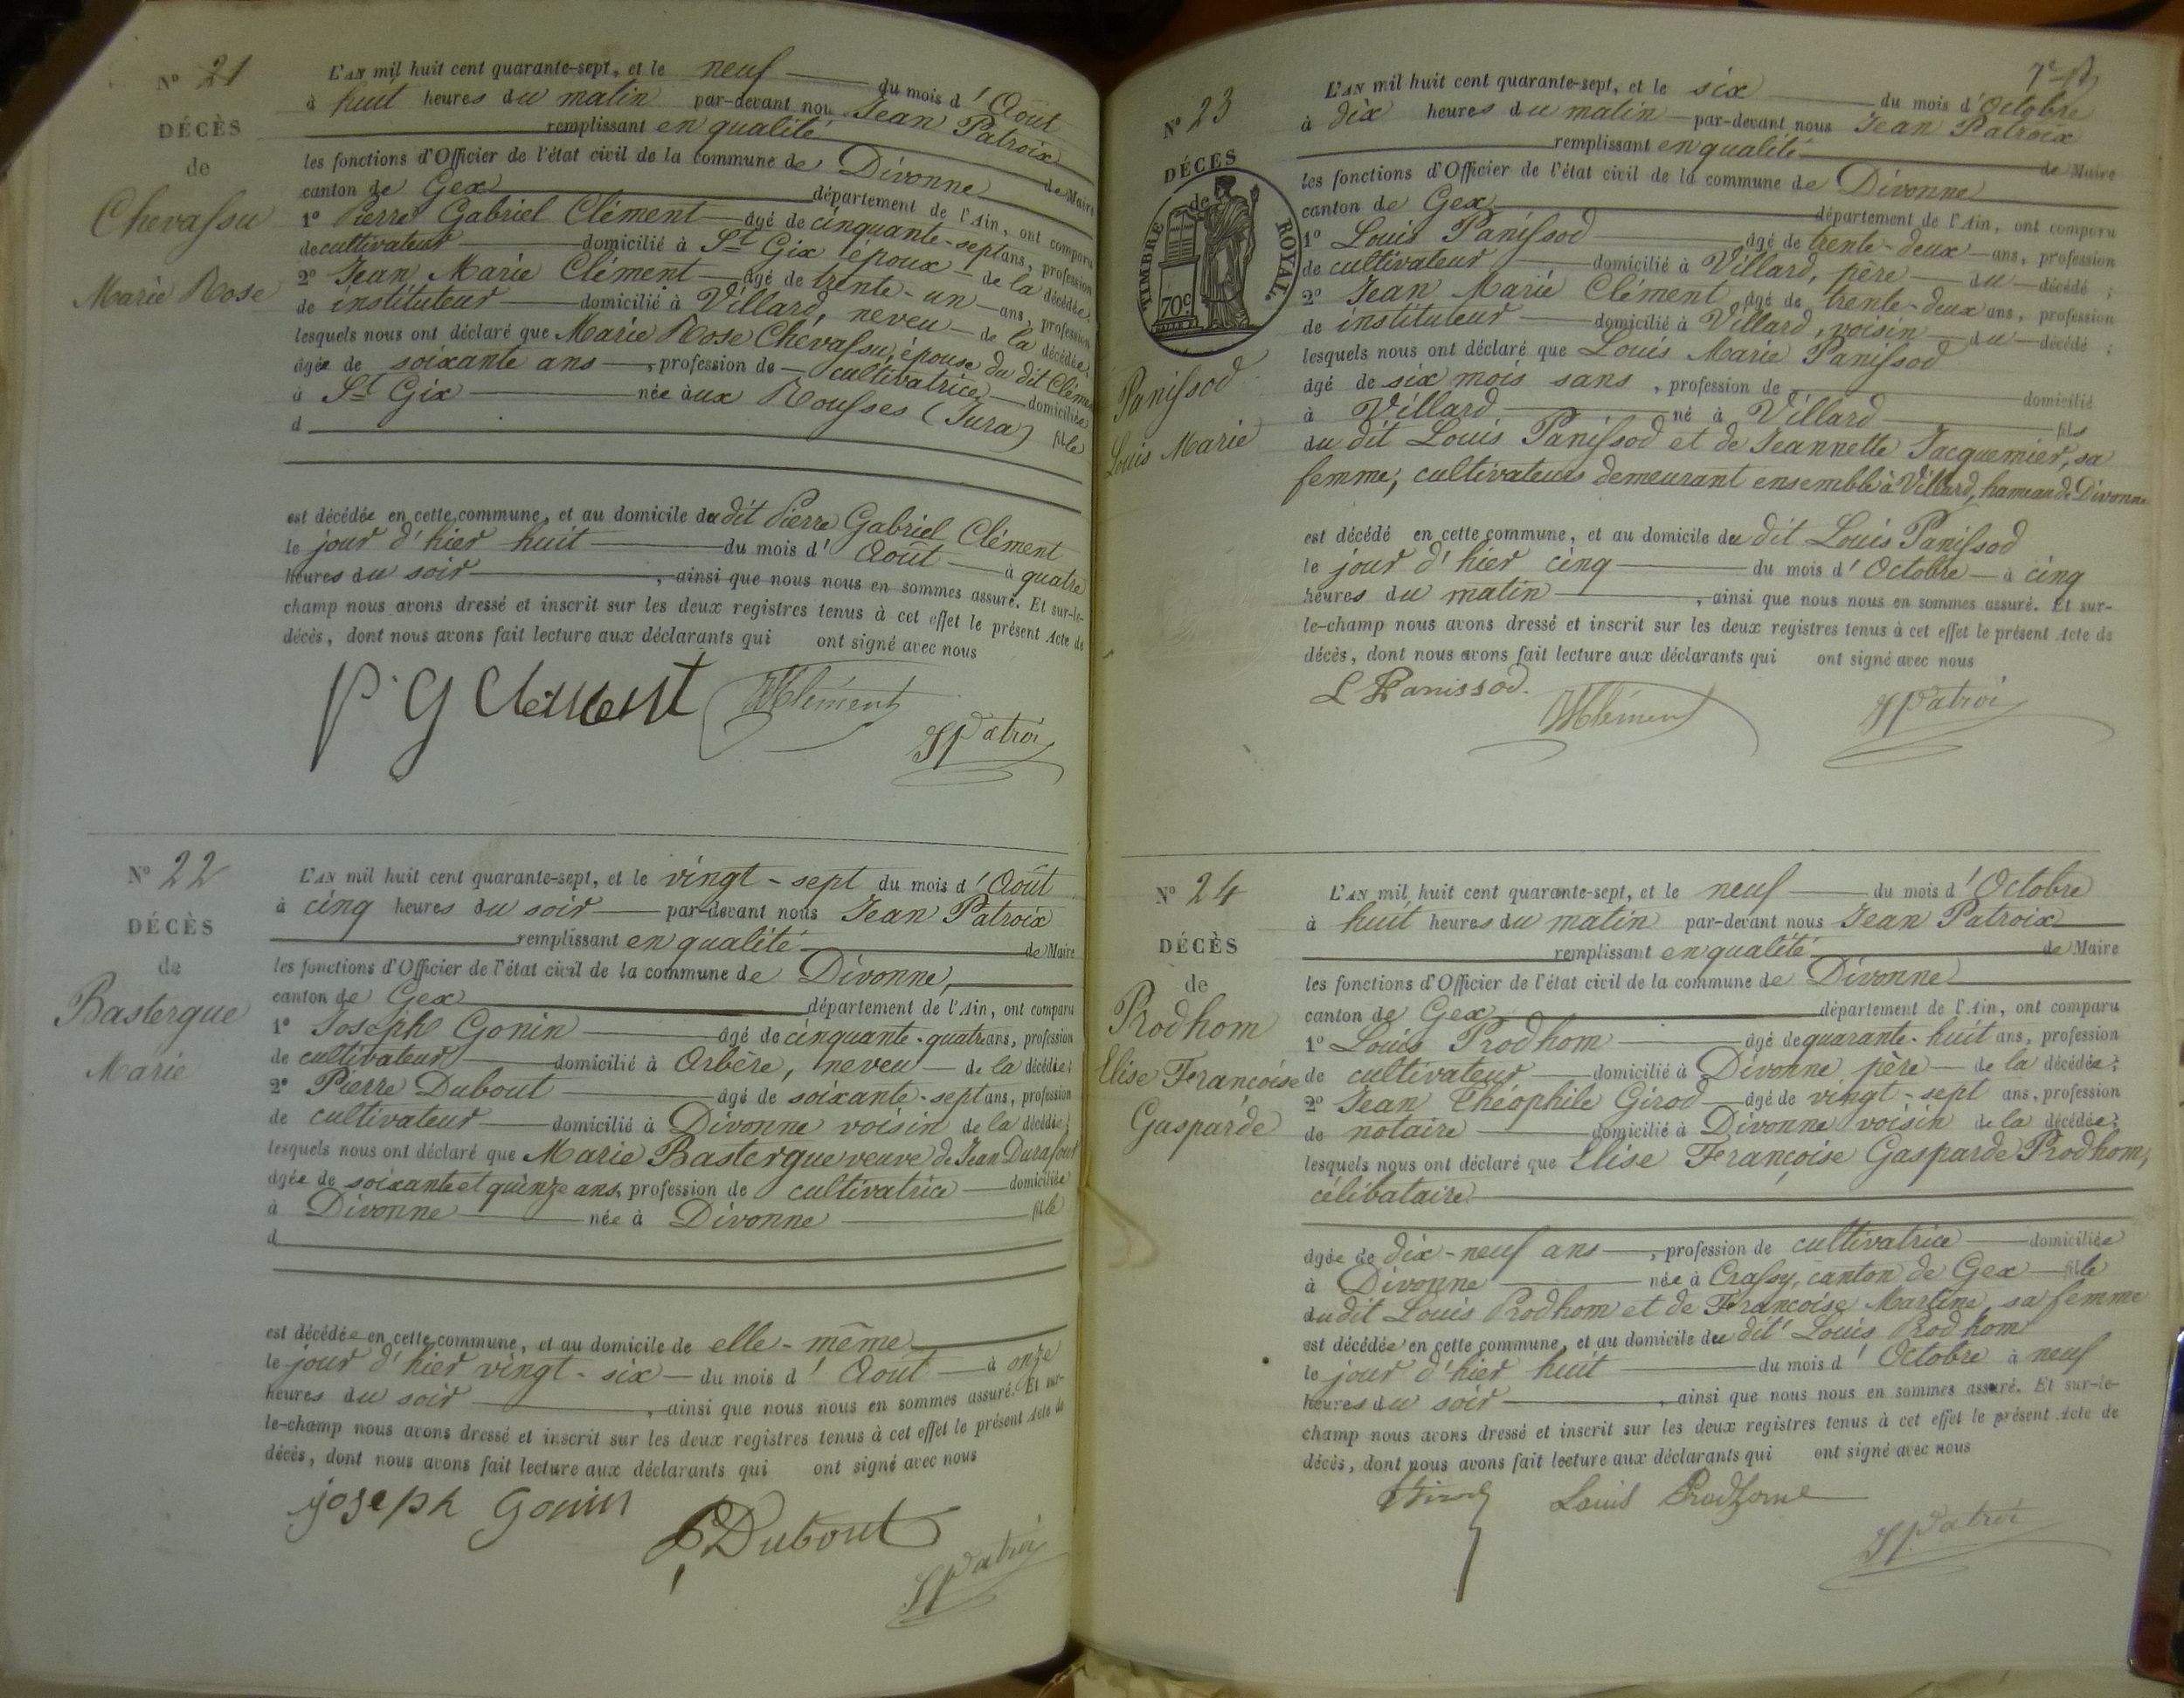 N° 21
DÉCÈS
de
Chevassu
Marie Rose
L'AN mil huit cent quarante-sept, et le neuf du mois d'Août
à huit heures du matin par-devant nou Jean Patroix
remplissant en qualité de Maire
les fonctions d'Officier de l'état civil de la commune de Divonne
canton de Gex département de l'Ain, ont comparu
1° Pierre Gabriel Clément âgé de cinquante-sept ans, profession
de cultivateur domicilié à St Gix époux de la décédée;
2° Jean Marie Clément âgé de trente-un ans, profession
de instituteur domicilié à Villard, neveu de la décédée;
lesquels nous ont déclaré que Marie Rose Chevassu, épouse du dit Clément
âgée de soixante ans, profession de cultivatrice domiciliée
à St Gix née aux Rousses (Jura) fille
d
est décédée en cette commune, et au domicile du dit Pierre Gabriel Clément
le jour d'hier huit du mois d'Août à quatre
heures du soir, ainsi que nous nous en sommes assuré. Et sur-le-
champ nous avons dressé et inscrit sur les deux registres tenus à cet effet le présent Acte de
décès, dont nous avons fait lecture aux déclarants qui ont signé avec nous
P. G Clement JMClément JPatroi
N° 22
DÉCÈS
de
Bastergue
Marie
L'AN mil huit cent quarante-sept, et le vingt-sept du mois d'Août
à cinq heures du soir par-devant nous Jean Patroix
remplissant en qualité de Maire
les fonctions d'Officier de l'état civil de la commune de Divonne,
canton de Gex département de l'Ain, ont comparu
1° Joseph Gonin âgé de cinquante-quatre ans, profession
de cultivateur domicilié à Arbère, neveu de la décédée;
2° Pierre Dubout âgé de soixante-sept ans, profession
de cultivateur domicilié à Divonne voisin de la décédée;
lesquels nous ont déclaré que Marie Bastergue veuve de Jean Durafour
âgée de soixante et quinze ans, profession de cultivatrice domiciliée
à Divonne née à Divonne fille
d
est décédée en cette commune, et au domicile de elle-même
le jour d'hier vingt-six du mois d'Août à onze
heures du soir, ainsi que nous nous en sommes assuré. Et sur-
le-champ nous avons dressé et inscrit sur les deux registres tenus à cet effet le présent Acte de
décès, dont nous avons fait lecture aux déclarants qui ont signé avec nous
joseph Gonin P Dubout JPatroi
7e
N° 23
DÉCÈS
de
TIMBRE ROYAL.
70c
Panissod
Louis Marie
L'AN mil huit cent quarante-sept, et le six du mois d'Octobre
à dix heures du matin par-devant nous Jean Patroix
remplissant en qualité de Maire
les fonctions d'Officier de l'état civil de la commune de Divonne
canton de Gex département de l'Ain, ont comparu
1° Louis Panissod âgé de trente-deux ans, profession
de cultivateur domicilié à Villard, père du décédé;
2° Jean Marie Clément âgé de trente-deux ans, profession
de instituteur domicilié à Villard, voisin du décédé;
lesquels nous ont déclaré que Louis Marie Panissod
âgé de six mois sans, profession de domicilié
à Villard né à Villard fils
du dit Louis Panissod et de Jeannette Jacquemier, sa
femme, cultivateurs demeurant ensemble à Villard, hameau de Divonne
est décédé en cette commune, et au domicile du dit Louis Panissod
le jour d'hier cinq du mois d'Octobre à cinq
heures du matin, ainsi que nous nous en sommes assuré. Et sur-
le-champ nous avons dressé et inscrit sur les deux registres tenus à cet effet le présent Acte de
décès, dont nous avons fait lecture aux déclarants qui ont signé avec nous
L Panissod. JMClément JPatroi
N° 24
DÉCÈS
de
Prodhom
Elise Françoise
Gasparde
L'AN mil huit cent quarante-sept, et le neuf du mois d'Octobre
à huit heures du matin par-devant nous Jean Patroix
remplissant en qualité de Maire
les fonctions d'Officier de l'état civil de la commune de Divonne
canton de Gex département de l'Ain, ont comparu
1° Louis Prodhom âgé de quarante-huit ans, profession
de cultivateur domicilié à Divonne père de la décédée;
2° Jean Théophile Girod âgé de vingt-sept ans, profession
de notaire domicilié à Divonne voisin de la décédée;
lesquels nous ont déclaré que Elise Françoise Gasparde Prodhom,
célibataire
âgée de dix-neuf ans, profession de cultivatrice domiciliée
à Divonne née à Crassy, canton de Gex fille
du dit Louis Prodhom et de Françoise Martine, sa femme
est décédée en cette commune, et au domicile du dit Louis Prodhom
le jour d'hier huit du mois d'Octobre à neuf
heures du soir, ainsi que nous nous en sommes assuré. Et sur-le-
champ nous avons dressé et inscrit sur les deux registres tenus à cet effet le présent Acte de
décès, dont nous avons fait lecture aux déclarants qui ont signé avec nous
Girod Louis Prodhome JPatroi